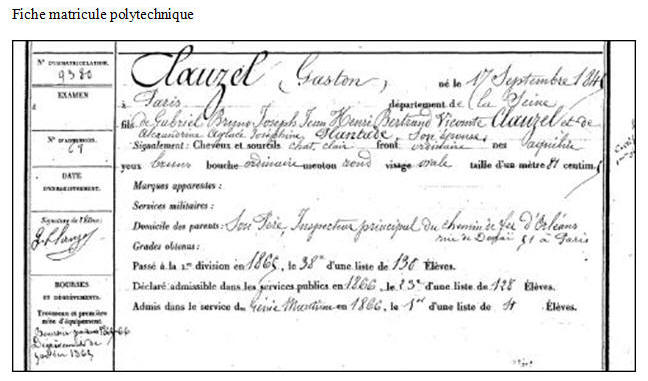 Fiche matricule polytechnique
N° D'IMMATRICULATION.
9380
EXAMEN
N° D'ADMISSION.
DATE
D'ENREGISTREMENT.
Signature de l'Élève:
BOURSES
ET DÉGRÈVEMENTS.
Trousseau et première
mise d'équipement.
Clauzel (Gaston) né le 17 Septembre 184
à Paris département de la Seine
fils de Gabriel Bruno Joseph Jean Henri Bertrand Vicomte Clauzel et de
Alexandrine Aglaée Joséphine Plantade, Son épouse.
Signalement: Cheveux et sourcils chat. clair front ordinaire nez aquilin
yeux bruns bouche ordinaire menton rond visage ovale taille d'un mètre 81 centim.
Marques apparentes:
Services militaires:
Domicile des parents: Son Père, Inspecteur principal du chemin de fer d'Orléans
rue de 51 à Paris
Grades obtenus:
Passé à la 1re division en 1865, le 38e d'une liste de 130 Élèves.
Déclaré admissible dans les services publics en 1866, le 23e d'une liste de 128 Élèves.
Admis dans le service du Génie Maritime en 1866, le 1er d'une liste de 4 Élèves.